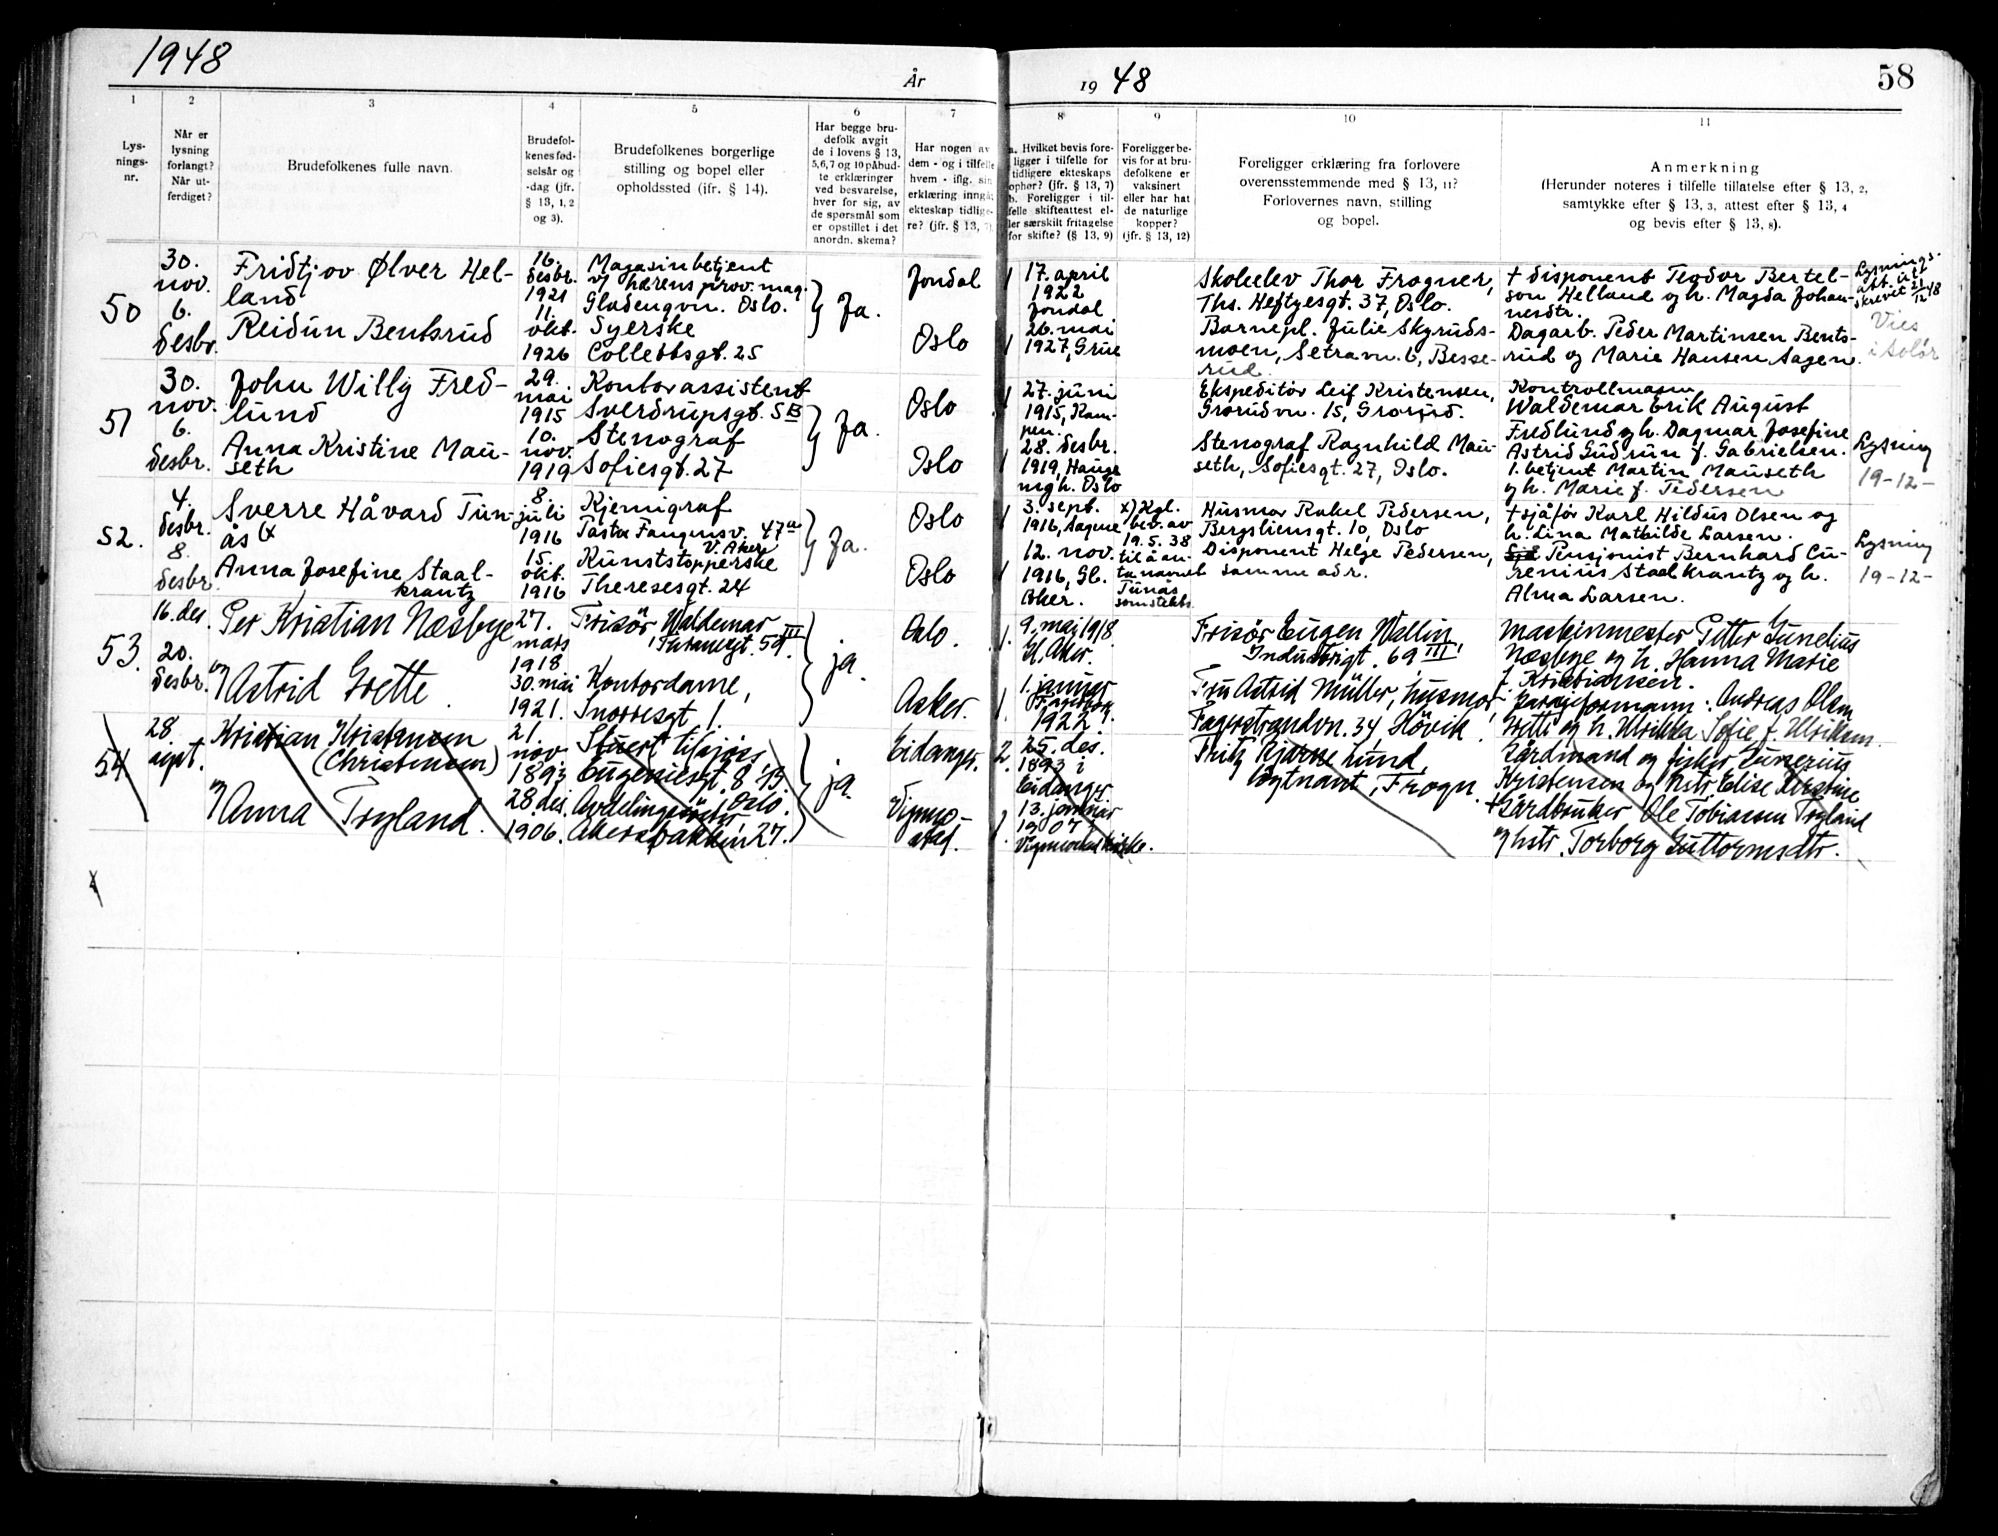 1948
År
19 48
58
1
2
3
4
5
6
7
8
9
10
11
Lys-
nings-
nr.
Når er
lysning
forlangt?
Når ut-
ferdiget?
Brudefolkenes fulle navn.
Brudefol-
kenes fød-
selsår og
-dag (jfr.
§ 13, 1, 2
og 3).
Brudefolkenes borgerlige
stilling og bopel eller
opholdssted (ifr. § 14).
Har begge bru-
defolk avgit
de i lovens § 13,
5,6,7 og 10 påbud-
te erklæringer
ved besvarelse,
hver for sig, av
de spørsmål som
er opstillet i det
anordn. skema?
Har nogen av
dem - og i tilfelle
hvem - iflg. sin
erklæring inngå
ekteskap tidlige-
re? (jfr. § 13, 7)
a. Hvilket bevis fore-
ligger i tilfelle for
tidligere ekteskaps
ophør? (jfr. § 13, 7)
b. Foreligger i til-
felle skifteattest el-
ler særskilt fritagelse
for skifte? (§ 13, 9)
Foreligger be-
vis for at bru-
defolkene er
vaksinert
eller har hat
de naturlige
kopper?
(jfr. § 13, 12)
Foreligger erklæring fra forlovere
overensstemmende med § 13, 11?
Forlovernes navn, stilling
og bopel.
Anmerkning
(Herunder noteres i tilfelle tillatelse efter § 13, 2,
samtykke efter § 13, 3, attest efter § 13, 4
og bevis efter § 13, 8).
50
30.
nov.
6.
desbr.
Fridtjov Ølver Hel-
land
Reidun Bentsrud
16.
desbr.
1921
11.
okt.
1926
Magasinbetjent
v/ hærens prov. mag.
Gladengvn. Oslo.
Syerske
Collettsgt. 25
Ja.
Jondal
Oslo
17. april
1922
Jondal
26. mai
1927, Grue
Skoleelev Thor Frogner,
Ths. Heftyesgt. 37, Oslo.
Barnepl. Julie Skyruds-
moen, Setravn. 6, Besse-
rud.
+ disponent Teodor Bertel-
son Helland og h. Magda Johan-
nesdtr.
Dagarb. Peder Martinsen Bents-
rud og Marie Hansen Aagen.
Lysnings-
att. ut-
skrevet 21/12 48
Vies
i Solør
51
30.
nov.
6.
desbr.
John Willy Fred-
lund
Anna Kristine Mau-
seth
29.
mai
1915
10.
nov.
1919
Kontorassistent
Sverdrupsgt. 5B
Stenograf
Sofiesgt. 27
Ja.
Oslo
Oslo
27. juni
1915, Kam-
pen.
28. desbr.
1919, Hauge
mgh. Oslo
Ekspeditør Leif Kristensen,
Grorudvn. 15, Grorud.
Stenograf Ragnhild Mau-
seth, Sofiesgt. 27, Oslo.
Kontrollmann
Waldemar Erik August
Fredlund og h. Dagmar Josefine
Astrid Gudrun f. Gabrielsen.
1. betjent Martin Mauseth
og h. Marie f. Pedersen
Lysning
19-12-
52.
4.
desbr.
8.
desbr.
Sverre Håvard Tun-
ås (x
Anna Josefine Staal-
krantz
8.
juli
1916
15.
okt.
1916
Kjemigraf
Tastu Fangensv. 47a
V. Aker
Kunststopperske
Theresesgt. 24
Ja.
Oslo
Oslo
3. sept.
1916, Aagene
12. nov.
1916, Gl.
Aker.
x) Kgl.
bev. av
19.5.38
til å an-
ta navnet
Tunås
som slekts
Husmor Rakel Pedersen,
Bergsliensgt. 10, Oslo
Disponent Helge Pedersen,
samme adr.
+ sjåfør Karl Hildus Olsen og
h. Lina Mathilde Larsen.
Pensjonist Bernhard Cu-
renius Staalkrantz og h.
Alma Larsen.
Lysning
19-12-
53.
16. des.
20.
desbr.
Per Kristian Næsbye
og
Astrid Grette.
27.
mars
1918
30. mai
1921.
Frisør, Waldemar
Thranesgt. 59 III.
Kontordame,
Snorresgt 1.
ja.
Oslo.
Asker.
9. mai 1918
Gl. Aker.
1. januar
1922
Frisør Eugen Wallin
Industrigt. 69 III
Fru Astrid Müller, husmor,
Fagerstrandvn. 34 Hövik.
Maskinmester Petter Gunelius
Næsbye og h. Hanna Marie
f. Kristiansen.
Garasjeformann. Andreas Olsen
Grette og h. Ulrikka Sofie f. Ulriksen.
54
28.
sept.
Kristian Kristensen
(Christensen)
og Anna Tryland.
21.
nov.
1893
28 des.
1906.
Stuert tilsjøss
Eugeniesgt. 8 B
Oslo.
Akersbakken 27.
ja.
Eidanger.
Vigmo-
stad.
2.
25. des.
1893 i
Eidanger
13. januar
1907
Vigmostad kirke.
Fritz Bjarne Lund
løytnant, Frogn.
Gårdmand og fisker Gunerius
Kristensen og hstr Elise Kirstine
+ Gårdbruker Ole Tobiassen Tryland
og hstr. Torborg Guttormsdtr.